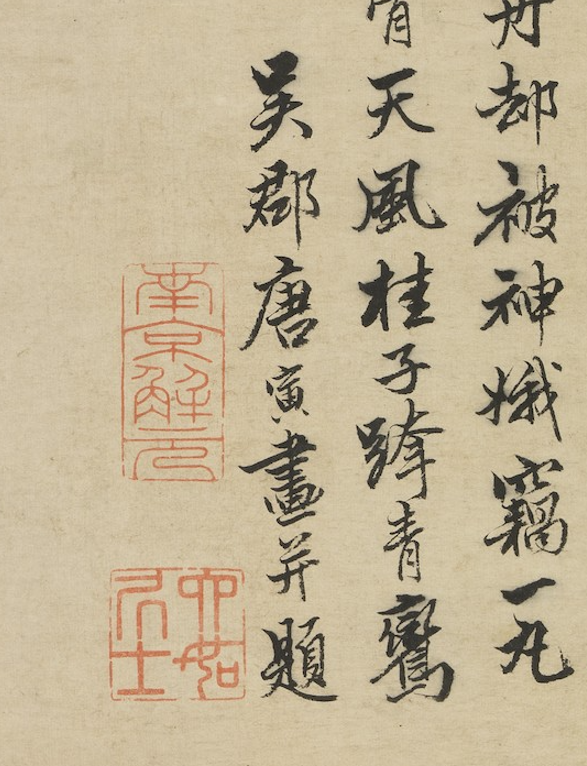 丹却被神娥竊一丸
骨天風桂子跨青鸞
吳郡唐寅畫并題
南京解元
六如居士